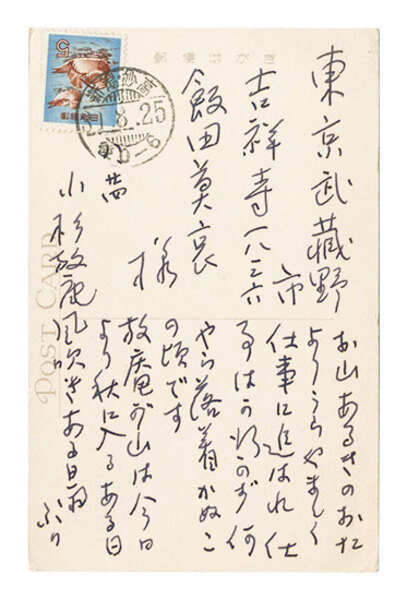 郵便はがき
POST CARD
5
8.25
0-6
東京武蔵野
市
吉祥寺一八三六
飯田莫哀
様
小杉放庵
お山あるきのおた
よりうらやましく
仕事に追はれ 仕
何
やら落着かぬこ
の頃です
放庵が山は今日
より秋に入るある日
風吹きある日雨
ふり